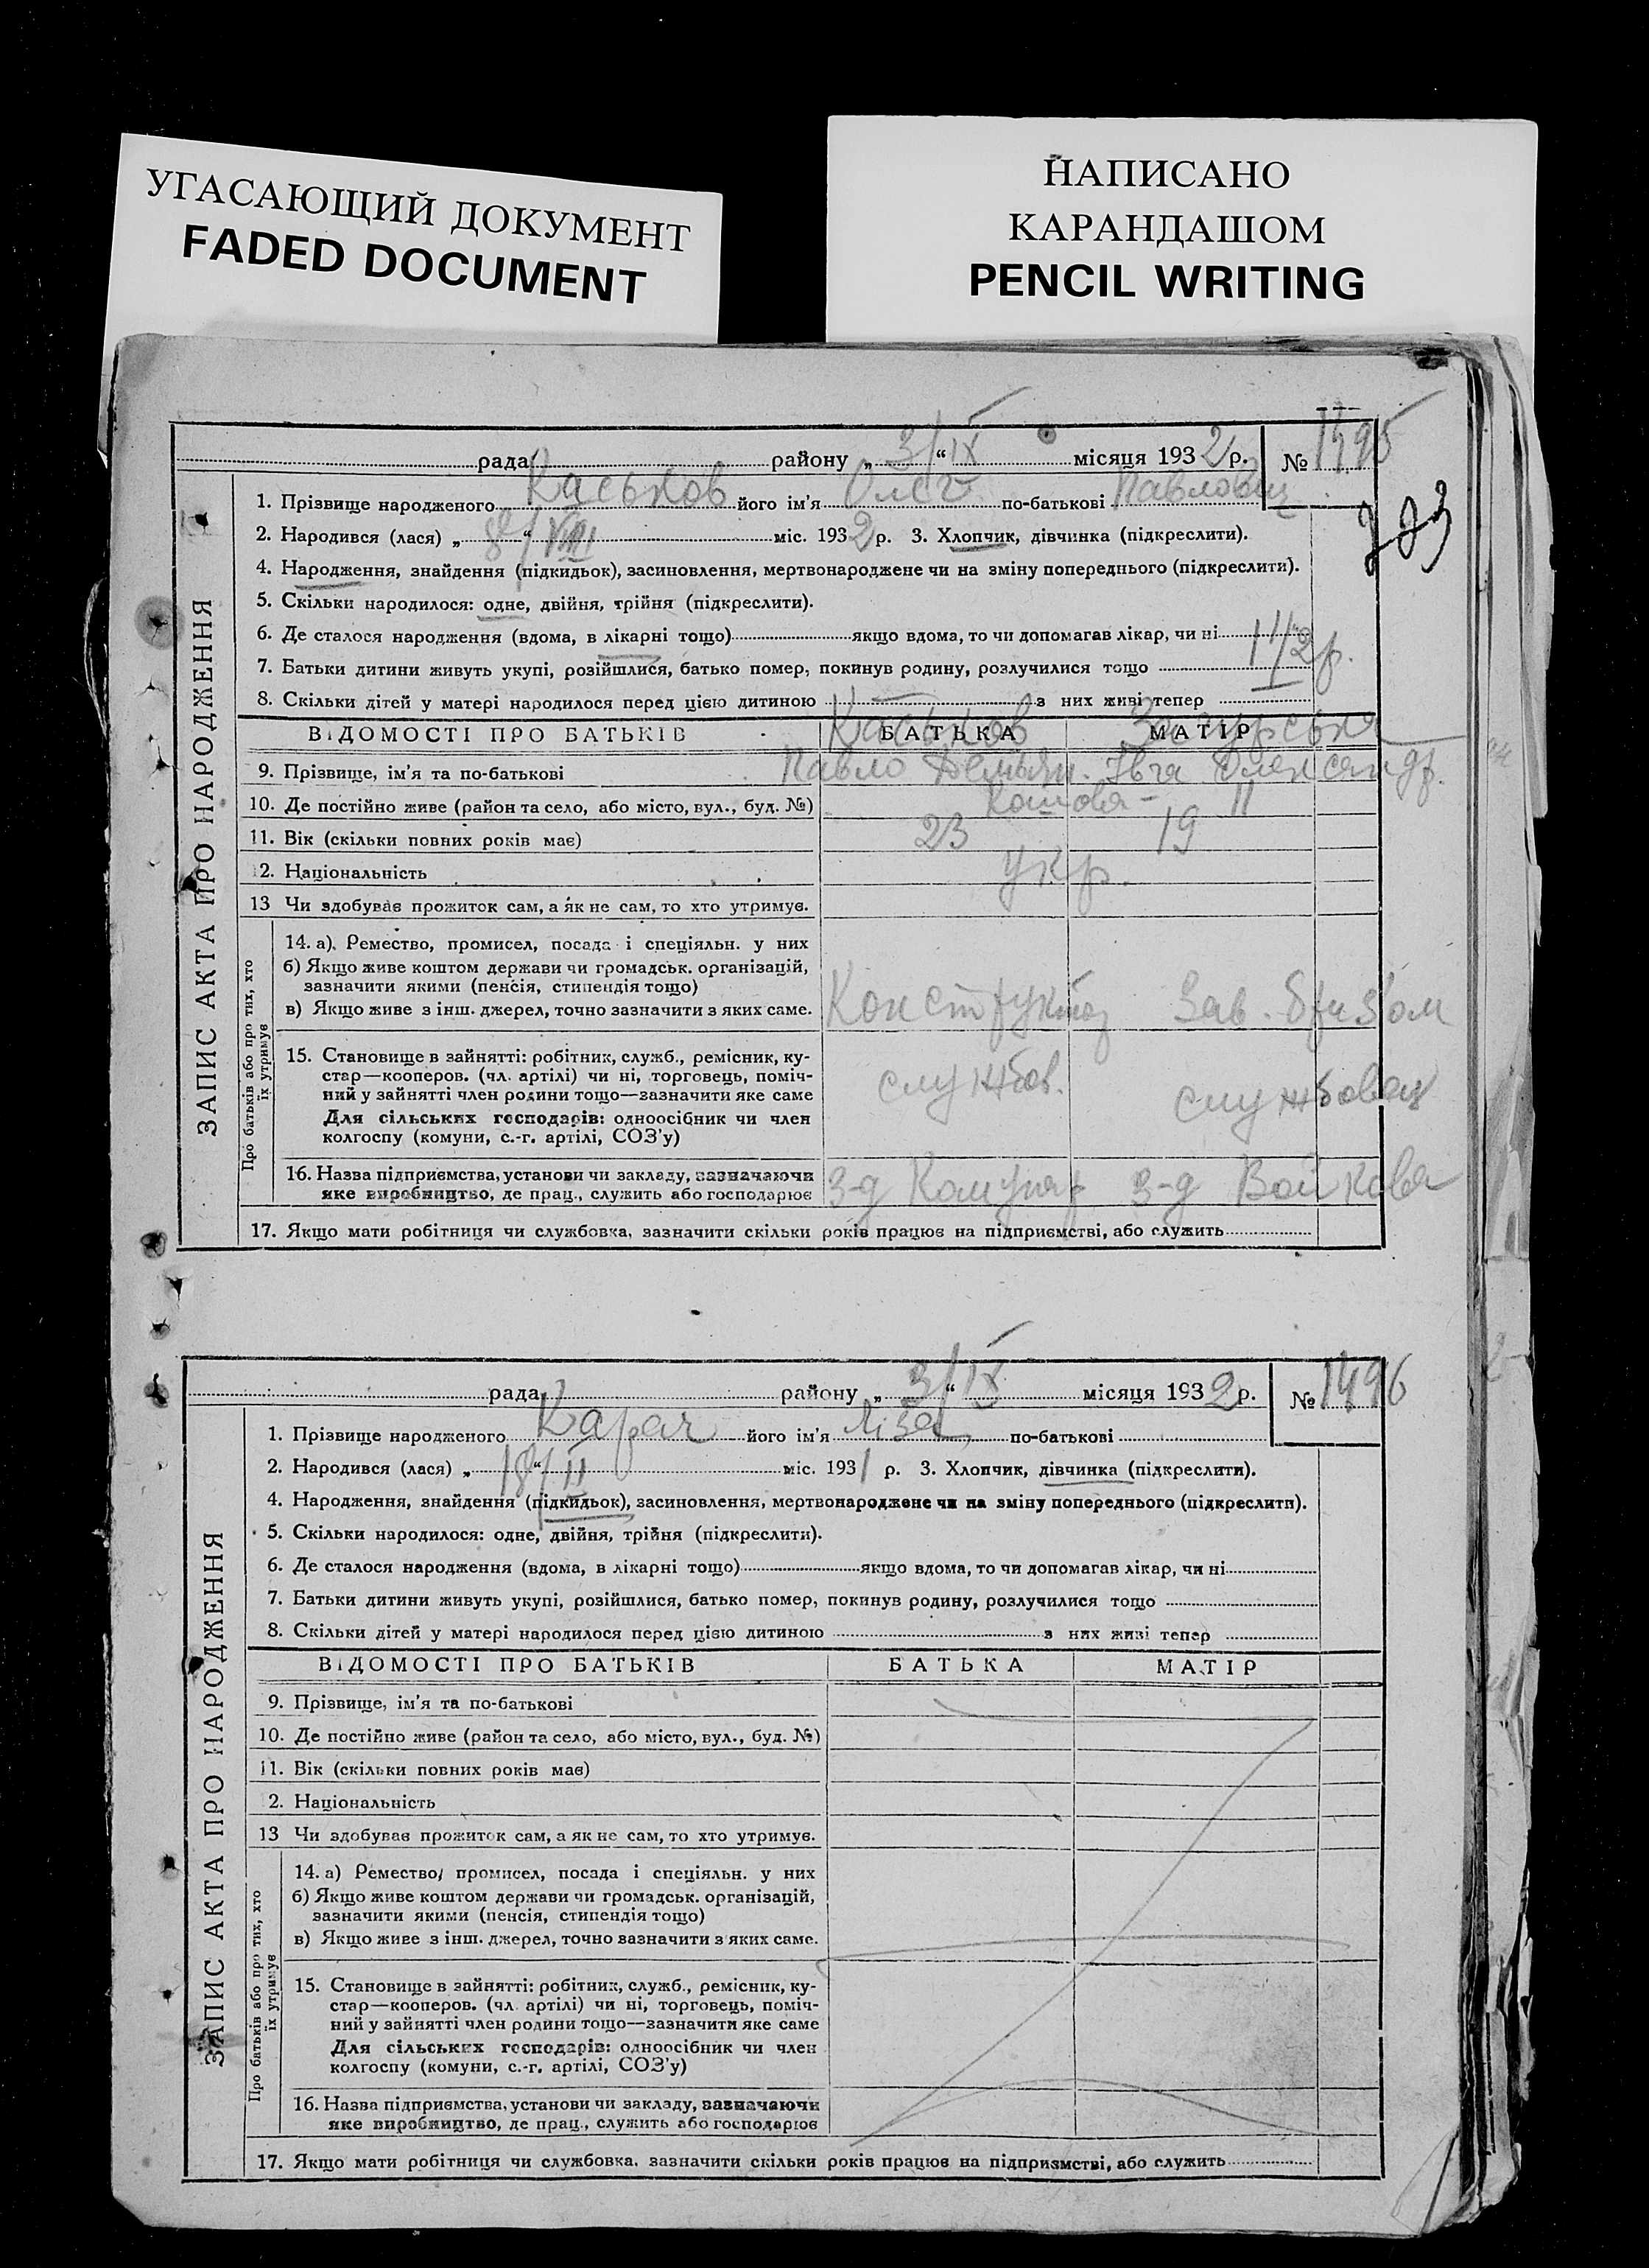 УГАСАЮЩИЙ ДОКУМЕНТ
FADED DOCUMENT
НАПИСАНО
КАРАНДАШОМ
PENCIL WRITING
рада району „ 3/IX “ місяця 1932 р. № 1495
1. Прізвище народженого Каськов його ім'я Олег по-батькові Павлович
2. Народився (лася) „ 8/VIII “ міс. 1932 р. 3. Хлопчик, дівчинка (підкреслити).
4. Народження, знайдення (підкидьок), засиновлення, мертвонароджене чи на зміну попереднього (підкреслити).
5. Скільки народилося: одне, двійня, трійня (підкреслити).
6. Де сталося народження (вдома, в лікарні тощо) якщо вдома, то чи допомагав лікар, чи ні
7. Батьки дитини живуть укупі, розійшлися, батько помер, покинув родину, розлучилися тощо 1 1/2 р.
8. Скільки дітей у матері народилося перед цією дитиною з них живі тепер
ВІДОМОСТІ ПРО БАТЬКІВ БАТЬКА МАТІР
Каськов Загурська
9. Прізвище, ім'я та по-батькові Павло Демьян. Олександ.
10. Де постійно живе (район та село, або місто, вул., буд. №) 11
11. Вік (скільки повних років має) 23 19
12. Національність укр.
13 Чи здобуває прожиток сам, а як не сам, то хто утримує.
14. а). Ремество, промисел, посада і спеціяльн. у них
б) Якщо живе коштом держави чи громадськ. організацій,
зазначити якими (пенсія, стипендія тощо)
в) Якщо живе з інш. джерел, точно зазначити з яких саме. Конструктор Зав. бризом
15. Становище в зайнятті: робітник, служб., ремісник, ку-
стар—кооперов. (чл. артілі) чи ні, торговець, поміч-
ний у зайнятті член родини тощо—зазначити яке саме службов. службовец
Для сільських господарів: одноосібник чи член
колгоспу (комуни, с.-г. артілі, СОЗ'у)
16. Назва підприємства, установи чи закладу, зазначаючи
яке виробництво, де прац., служить або господарює З-д Комунар З-д Войкова
17. Якщо мати робітниця чи службовка, зазначити скільки років працює на підприємстві, або служить
ЗАПИС АКТА ПРО НАРОДЖЕННЯ
Про батьків або про тих, хто
їх утримує
рада району „ 3/IX “ місяця 1932 р. № 1496
1. Прізвище народженого Карач його ім'я Ліза по-батькові
2. Народився (лася) „ 18/II “ міс. 1931 р. 3. Хлопчик, дівчинка (підкреслити).
4. Народження, знайдення (підкидьок), засиновлення, мертвонароджене чи на зміну попереднього (підкреслити).
5. Скільки народилося: одне, двійня, трійня (підкреслити).
6. Де сталося народження (вдома, в лікарні тощо) якщо вдома, то чи допомагав лікар, чи ні
7. Батьки дитини живуть укупі, розійшлися, батько помер, покинув родину, розлучилися тощо
8. Скільки дітей у матері народилося перед цією дитиною з них живі тепер
ВІДОМОСТІ ПРО БАТЬКІВ БАТЬКА МАТІР
9. Прізвище, ім'я та по-батькові
10. Де постійно живе (район та село, або місто, вул., буд. №)
11. Вік (скільки повних років має)
2. Національність
13 Чи здобуває прожиток сам, а як не сам, то хто утримує.
14. а) Ремество, промисел, посада і спеціяльн. у них
б) Якщо живе коштом держави чи громадськ. організацій,
зазначити якими (пенсія, стипендія тощо)
в) Якщо живе з інш. джерел, точно зазначити з яких саме.
15. Становище в зайнятті: робітник, служб., ремісник, ку-
стар—кооперов. (чл. артілі) чи ні, торговець, поміч-
ний у зайнятті член родини тощо—зазначити яке саме
Для сільських господарів: одноосібник чи член
колгоспу (комуни, с.-г. артілі, СОЗ'у)
16. Назва підприємства, установи чи закладу, зазначаючи
яке виробництво, де прац., служить або господарює
17. Якщо мати робітниця чи службовка, зазначити скільки років працює на підприємстві, або служить
ЗАПИС АКТА ПРО НАРОДЖЕННЯ
Про батьків або про тих, хто
їх утримує